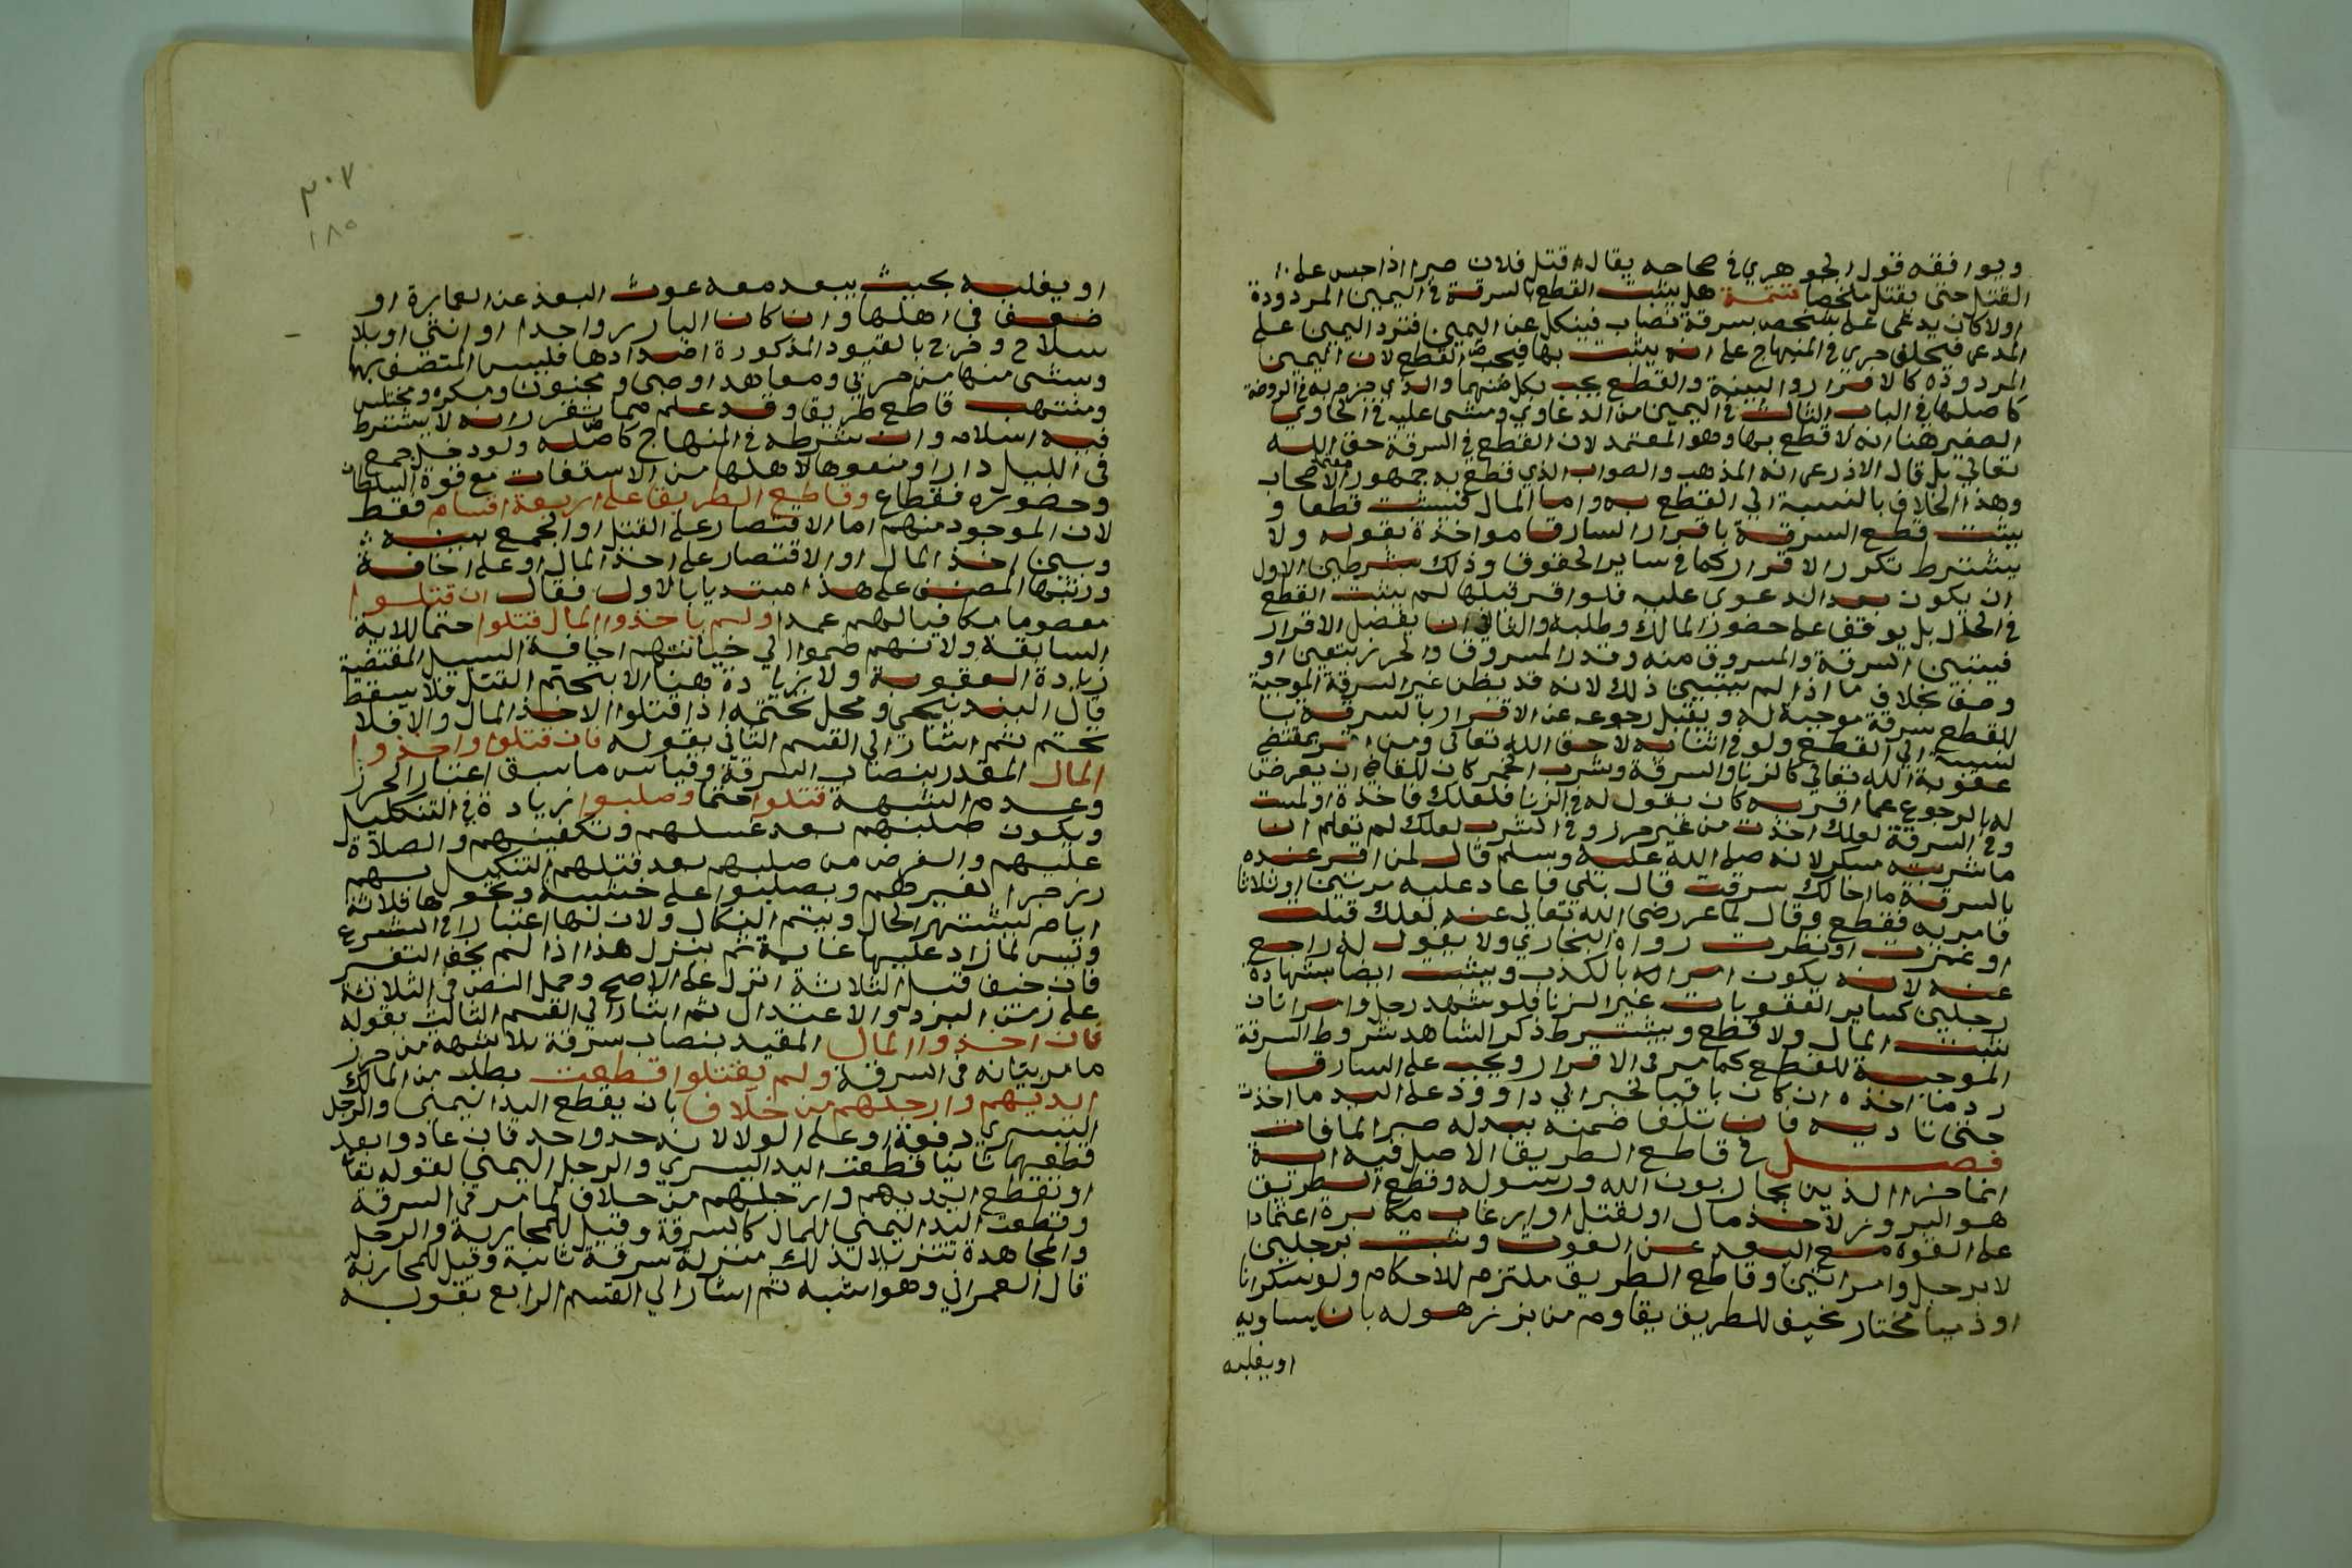 ويوافقه قول الجوهري في صحاحه يقال قتل فلان صبرا اذا حبس على
القتل حتى يقتل ملخصا تتمة هل يثبت القطع بالسرقة في اليمين المردودة
اولا كان يدعي على شخص سرقة نصاب فينكل عن اليمين فترد اليمين على
المدعي فيحلف جرى في المنهاج على انه يثبت بها فيجب القطع لان اليمين
المردودة كالاقرار والبينة والقطع يجب بكل منهما والذي جزم به في الروضة
كاصلها في الباب الثالث في اليمين من الدعاوي ومشى عليه في الحاوي
الصغير هنا انه لا قطع بها وهو المعتمد لان القطع في السرقة حق الله
تعالى بل قال الاذرعي انه المذهب والصواب الذي قطع به جمهور الاصحاب
وهذا الخلاف بالنسبة الى القطع به واما المال فيثبت قطعا و
يثبت قطع السرقة باقرار السارق مواخذة بقوله ولا
يشترط تكرر الاقرار كما في ساير الحقوق وذلك بشرطين الاول
ان يكون بعد الدعوى عليه فلو اقر قبلها لم يثبت القطع
في الحال بل يوقف على حضور المالك وطلبه والثاني ان يفصل الاقرار
فيبين السرقة والمسروق منه وقدر المسروق والحرز بتعيين او
وصف بخلاف ما اذا لم يبين ذلك لانه قد يظن غير السرقة الموجبة
للقطع سرقة موجبة له ويقبل رجوعه عن الاقرار بالسرقة با
لنسبة الى القطع ولو في اثنائه لانه حق الله تعالى ومن اقر بمقتضى
عقوبة الله تعالى كالزنا والسرقة وشرب الخمر كان للقاضي ان يعرض
له بالرجوع عما اقر به كان يقول له في الزنا فلعلك فاخذت او لمست
وفي السرقة لعلك اخذت من غير حرز وفي الشرب لعلك لم تعلم ان
ما شربته مسكر لانه صلى الله عليه وسلم قال لمن اقر عنده
بالسرقة ما اخالك سرقت قال بلى فاعاد عليه مرتين او ثلاثا
فامر به فقطع وقال لماعز رضي الله تعالى عنه لعلك قبلت
او غمزت او نظرت رواه البخاري ولا يقول له راجع
عنه لانه يكون امرا له بالكذب ويثبت ايضا بشهادة
رجلين كساير العقوبات غير الزنا فلو شهد رجل وامراتان
ثبت المال ولا قطع ويشترط ذكر الشاهد شروط السرقة
الموجبة للقطع كما مر في الاقرار ويجب على السارق
رد ما اخذه ان كان باقيا لخبر ابي داوود على اليد ما اخذت
حتى تاديه فان تلف ضمنه ببدله جبرا لما فات
فصل في قاطع الطريق الاصل فيه اية
انما جزاا الذين يحاربون الله ورسوله وقطع الطريق
هو البروز لاخذ مال او لقتل او ارعاب مكابرة اعتمادا
على القوة مع البعد عن الغوث ويثبت برجلين
لا برجل وامراتين وقاطع الطريق ملتزم للاحكام ولو سكرانا
او ذميا مختار مخيف للطريق يقاوم من يبرز هو له بان يساويه
او يغلبه
٣٠٧
١٨٥
او يغلبه بحيث يبعد معه غوث البعد عن العمارة او
ضعف في اهلها وان كان البارز واحدا او انثى او بلا
سلاح وخرج بالقيود المذكورة اضدادها فليس المتصف بها
وبشى منها من حربي ومعاهد او صبي ومجنون ومكره ومختلس
ومنتهب قاطع طريق وقد علم مما تقرر انه لا يشترط
فيه اسلام وان شرطه في المنهاج كاصله ولو دخل جمع
في الليل دارا ومنعوا اهلها من الاستغاث مع قوة السلطان
وحضوره فقطاع وقاطع الطريق على اربعة اقسام فقط
لان الموجود منهم اما الاقتصار على القتل او الجمع بينه
وبين اخذ المال او الاقتصار على اخذ المال او على اخافة
ورتبها المصنف على هذا مبتديا بالاول فقال ان قتلوا
معصوما مكافيا لهم عمدا ولم ياخذوا المال قتلوا حتما للاية
السابقة ولانهم ضموا الى جنايتهم اخافة السبيل المقتضية
زيادة العقوبة ولا زيادة هنا الا بتحتم القتل فلا يسقط
قال البندنيجي ومحل تحتمه اذا قتلوا لاخذ المال والا فلا
تحتم ثم اشار الى القسم الثاني بقوله فان قتلوا واخذوا
المال المقدر بنصاب السرقة وقياس ما سبق اعتبار الحرز
وعدم الشبهة قتلوا حتما وصلبوا زيادة في التنكيل
ويكون صلبهم بعد غسلهم وتكفينهم والصلاة
عليهم والغرض من صلبهم بعد قتلهم التنكيل بهم
وزجرا لغيرهم ويصلبوا على خشبة ونحوها ثلاثة
ايام ليشتهر الحال ويتم النكال ولان لها اعتبارا في الشرع
وليس لما زاد عليها غاية ثم ينزل هذا اذا لم يخف التغير
فان خيف قبل الثلاثة انزل على الاصح وحمل النص في الثلاثة
على زمن البرد والاعتدال ثم اشار الى القسم الثالث بقوله
فان اخذوا المال المقيد بنصاب سرقة بلا شبهة من حرز
ما مر بيانه في السرقة ولم يقتلوا قطعت بطلب من المالك
ايديهم وارجلهم من خلاف بان يقطع اليد اليمنى والرجل
اليسرى دفعة او على الولا لانه حد واحد فان عادوا بعد
قطعهما ثانيا قطعت اليد اليسرى والرجل اليمنى لقوله تعا
او تقطع ايديهم وارجلهم من خلاف لما مر في السرقة
وقطعت اليد اليمنى للمال كالسرقة وقيل للمحاربة والرجل
والمجاهدة تنزيلا لذلك منزلة سرقة ثانية وقيل للمحاربة
قال العمراني وهو اشبه ثم اشار الى القسم الرابع بقوله